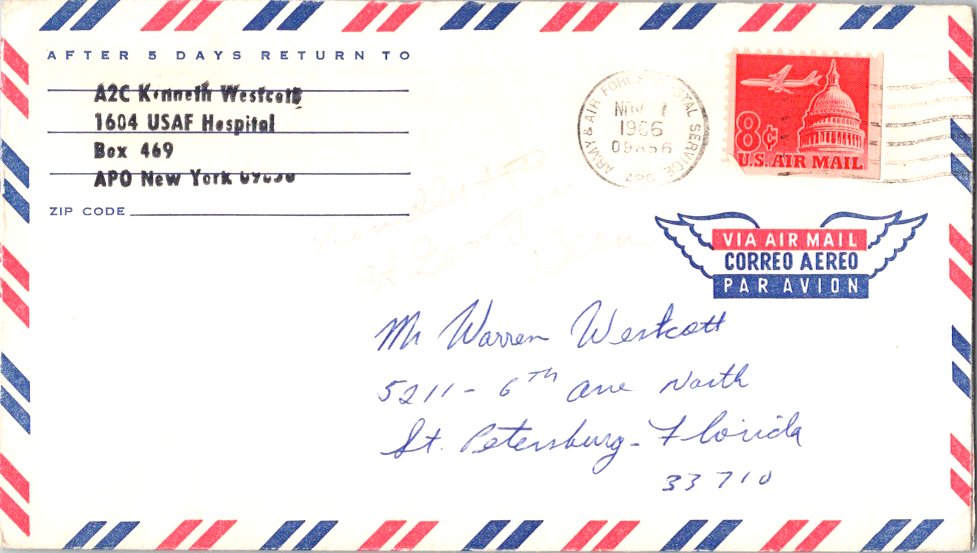 AFTER 5 DAYS RETURN TO
A2C Kenneth Westcott
1604 USAF Hospital
Box 469
APO New York
ZIP CODE
ARMY & AIR FORCE POSTAL SERVICE
APO
NOV 7
1966
8¢
U.S. AIR MAIL
VIA AIR MAIL
CORREO AEREO
PAR AVION
Mr Warren Westcott
5211 - 6TH ave North
St. Petersburg - Florida
33710